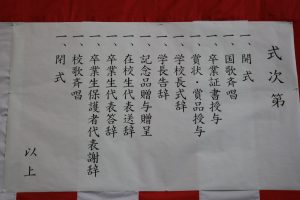 式次第
一、開式
一、国歌斉唱
一、卒業証書授与
一、賞状・賞品授与
一、学校長式辞
一、学長告辞
一、記念品贈与贈呈
一、在校生代表送辞
一、卒業生代表答辞
一、卒業生保護者代表謝辞
一、校歌斉唱
一、閉式
以上